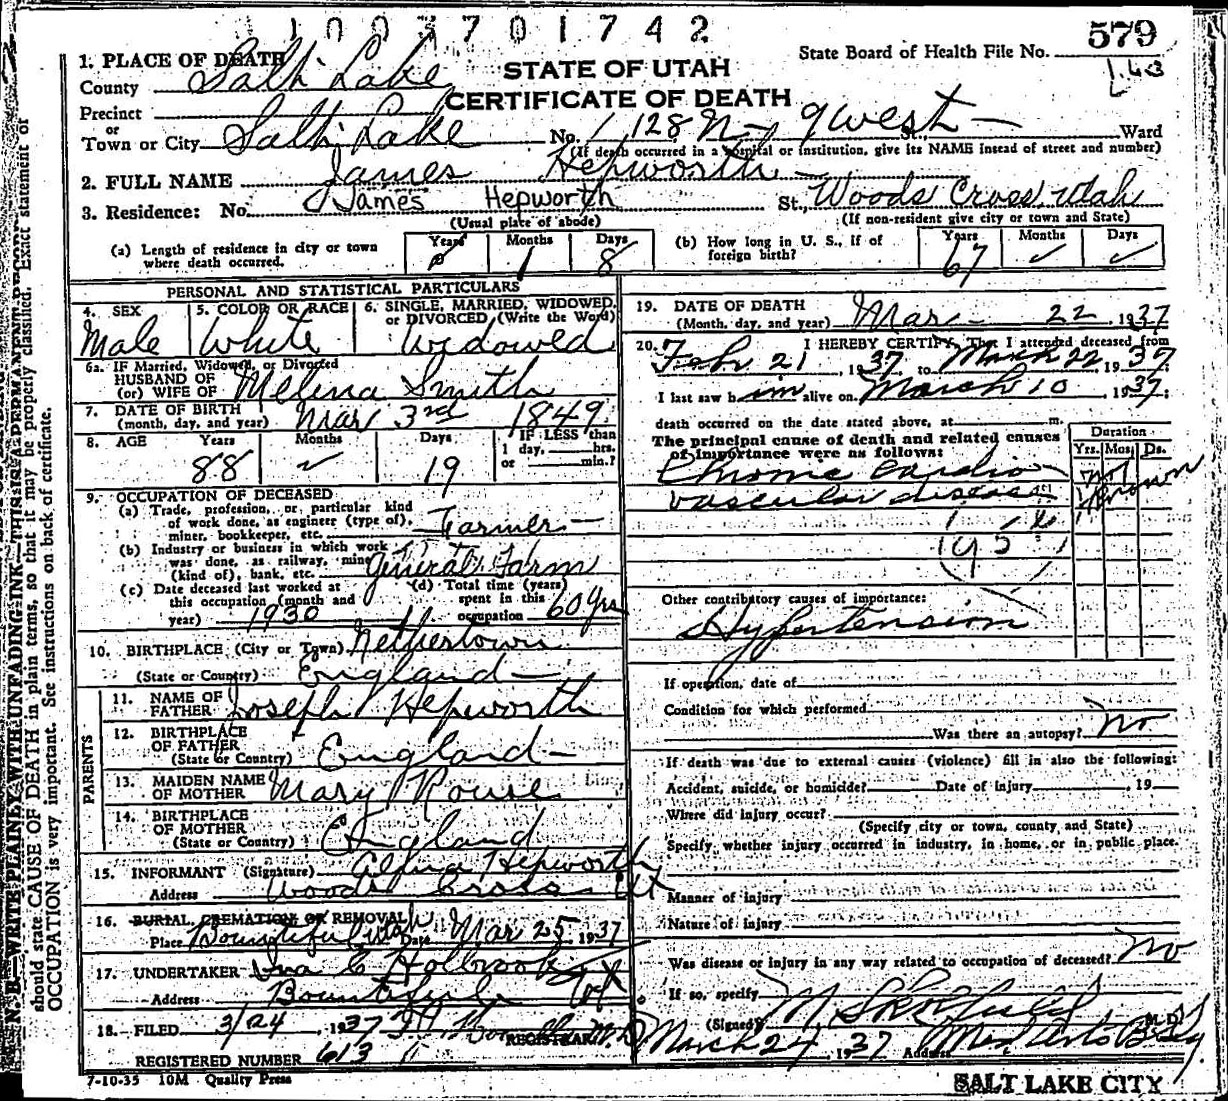 1003701742
579
State Board of Health File No.
STATE OF UTAH
CERTIFICATE OF DEATH
1. PLACE OF DEATH
County Salt Lake
Precinct
or
Town or City Salt Lake No. 1128 N- 9 West - St., Ward
(If death occurred in a hospital or institution, give its NAME insead of street and number)
2. FULL NAME James Hepworth
3. Residence: No. James Hepworth St., Woods Cross, Utah
(Usual place of abode) (If non-resident give city or town and State)
(a) Length of residence in city or town where death occurred. Years Months 1 Days 8
(b) How long in U. S., if of foreign birth? Years 67 Months ✓ Days ✓
PERSONAL AND STATISTICAL PARTICULARS
4. SEX Male
5. COLOR OR RACE White
6. SINGLE, MARRIED, WIDOWED, or DIVORCED (Write the Word) Widowed
6a. IF Married, Widowed, or Divorced
HUSBAND OF
(or) WIFE OF Melena Smith
7. DATE OF BIRTH
(month, day, and year) Mar 3rd 1849
8. AGE Years 88 Months ✓ Days 19 IF LESS than 1 day, hrs. or min.?
9. OCCUPATION OF DECEASED
(a) Trade, profession, or particular kind of work done, as engineer (type of), miner, bookkeeper, etc. Farmer
(b) Industry or business in which work was done, as railway, mine (kind of), bank, etc. General Farm
(c) Date deceased last worked at this occupation (month and year) 1930
(d) Total time (years) spent in this occupation 60 yrs
10. BIRTHPLACE (City or Town) Nethertown
(State or Country) England
PARENTS
11. NAME OF FATHER Joseph Hepworth
12. BIRTHPLACE OF FATHER (State or Country) England
13. MAIDEN NAME OF MOTHER Mary Rouse
14. BIRTHPLACE OF MOTHER (State or Country) England
15. INFORMANT (Signature) Hepworth
Address Woods Cross Ut
16. BURIAL, CREMATION OR REMOVAL
Place Bountiful Utah Date Mar 25, 1937
17. UNDERTAKER Holbrook
Address Bountiful Ut
18. FILED 3/24, 1937 REGISTRAR
REGISTERED NUMBER 613
7-10-35 10M Quality Press
19. DATE OF DEATH
(Month, day, and year) Mar 22, 1937
20. I HEREBY CERTIFY, That I attended deceased from
Feb 21, 1937 to March 22, 1937
I last saw him alive on March 10, 1937
death occurred on the date stated above, at m.
The principal cause of death and related causes of importance were as follows:
Duration
Yrs. Mos. Ds.
Chronic cardio
vascular disease not known
Other contributory causes of importance:
Hypertension
If operation, date of
Condition for which performed
Was there an autopsy? No
If death was due to external causes (violence) fill in also the following:
Accident, suicide, or homicide? Date of injury, 19
Where did injury occur?
(Specify city or town, county and State)
Specify whether injury occurred in industry, in home, or in public place.
Manner of injury
Nature of injury
Was disease or injury in any way related to occupation of deceased? No
If so, specify
(Signed) M. D.
March 24, 1937 Address
SALT LAKE CITY
N. B.—WRITE PLAINLY WITH UNFADING INK—THIS IS A PERMANENT
should state CAUSE OF DEATH in plain terms, so that it may be properly classified. Exact statement of
OCCUPATION is very important. See instructions on back of certificate.